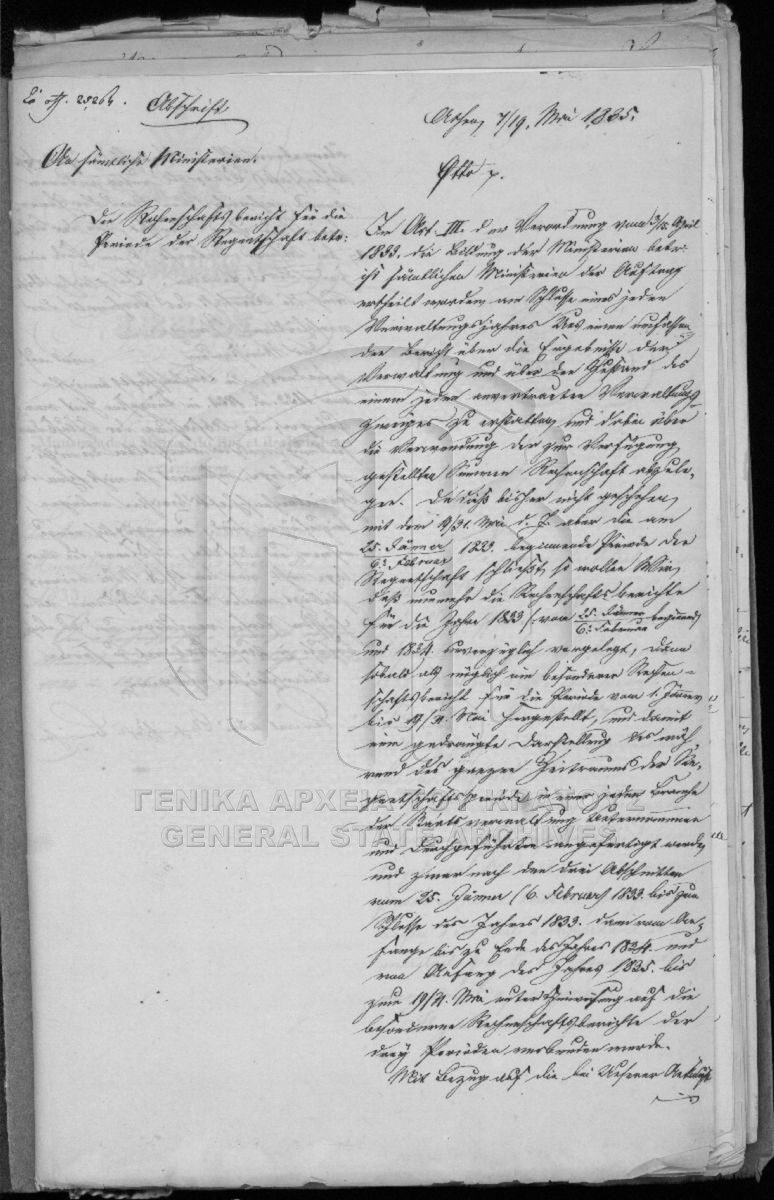 Abschrift
Athen, 7/19. Mai 1835.
An sämtliche Ministerien.
Otto p.
Die Rechenschaftsbericht für die
Periode der Regentschaft betr:
Im Art. III. der Verordnung vom 3/15. April
1833. die Bildung der Ministerien betr.
ist sämtlichen Ministerien der Auftrag
ertheilt worden, am Schlusse eines jeden
Verwaltungsjahres Uns einen umfassen
den Bericht über die Ergebnisse der
Verwaltung und über den Zustand des
einem jeden anvertrauten Verwaltungs
zweiges zu erstatten, und dabei über
die Verwendung der zur Verfügung
gestellten Summen Rechenschaft abzule,
gen. Da dieß bisher nicht geschehen,
mit dem Mai d. J. aber die am
25. Jänner / 6. Februar 1833. beginnende Periode der
Regentschaft schließt, so wollen Wir,
daß nunmehr die Rechenschaftsberichte
für die Jahre 1833 (: vom 25. Jänner / 6. Februar beginnend)
und 1834. unverzüglich vorgelegt, dann
sobald als möglich ein besonderer Rechen-
schaftsbericht für die Periode vom 1. Jänner
bis Mai hergestellt, und damit
eine gedrängte Darstellung des wäh,
rend des ganzen Zeitraums der Re,
gentschaftsperiode in einer jeden Branche
der Staatsverwaltung Unternommenen
und Durchgeführten angefertigt werde,
und zwar nach den drei Abschnitten
vom 25. Jänner (6. Februar) 1833. bis zum
Schlusse des Jahres 1833. dann vom An,
fange bis zu Ende des Jahres 1834. und
vom Anfang des Jahres 1835. bis
zum 19/31. Mai unter Hinweisung auf die
besonderen Rechenschaftsberichte der
drey Perioden verbunden werde.
Mit Bezug auf die bei Unserer
ΓΕΝΙΚΑ ΑΡΧΕΙΑ ΤΟΥ ΚΡΑΤΟΥΣ
GENERAL STATE ARCHIVES